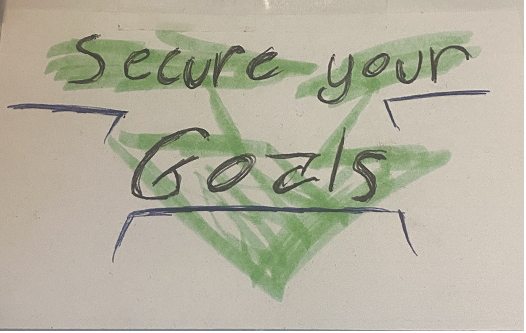 Secure your
Goals